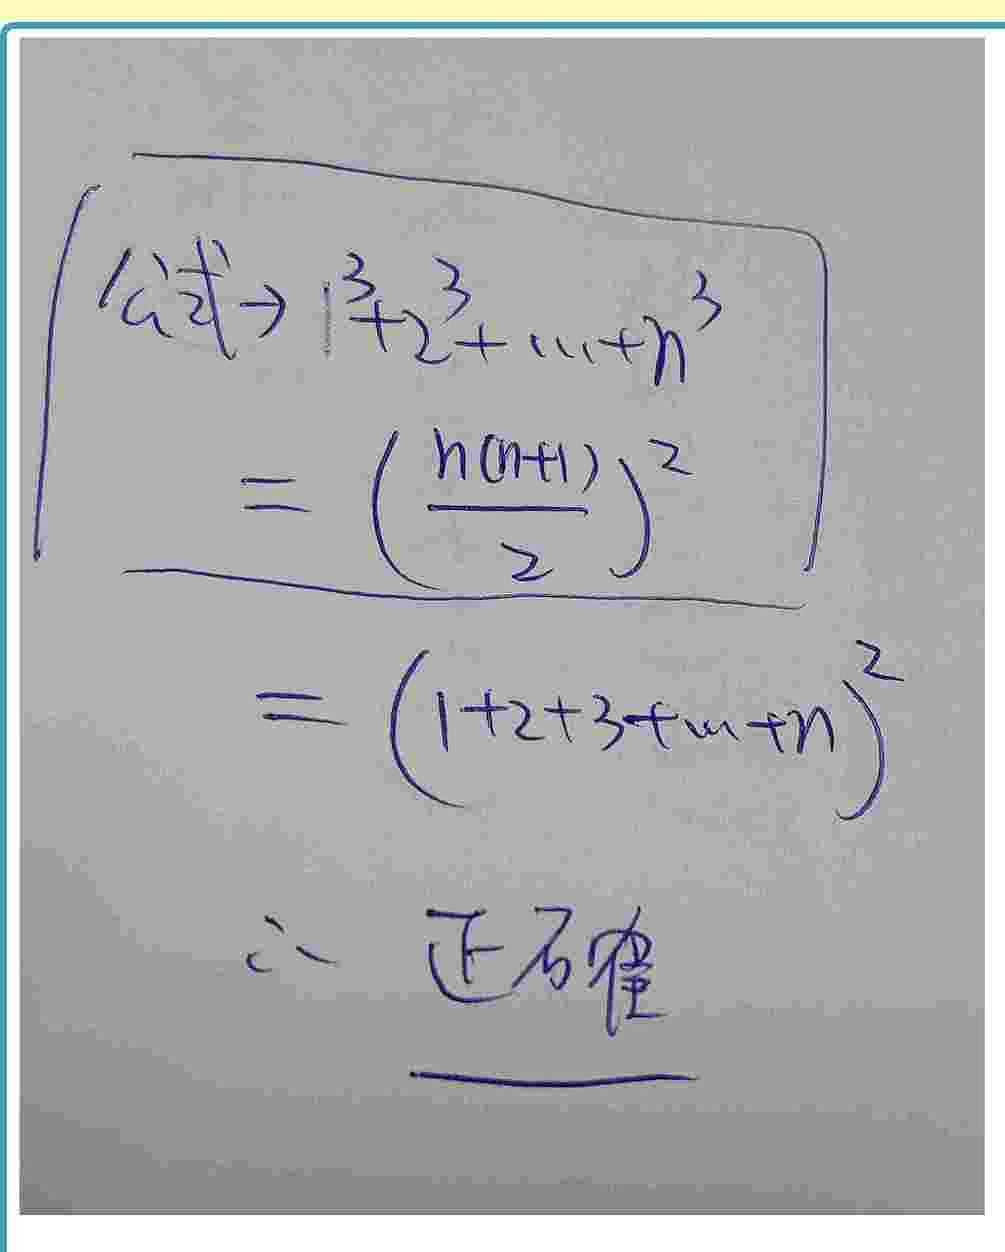 公式→ 1³+2³+...+n³
= (n(n+1)/2)²
= (1+2+3+...+n)²
∴ 正確